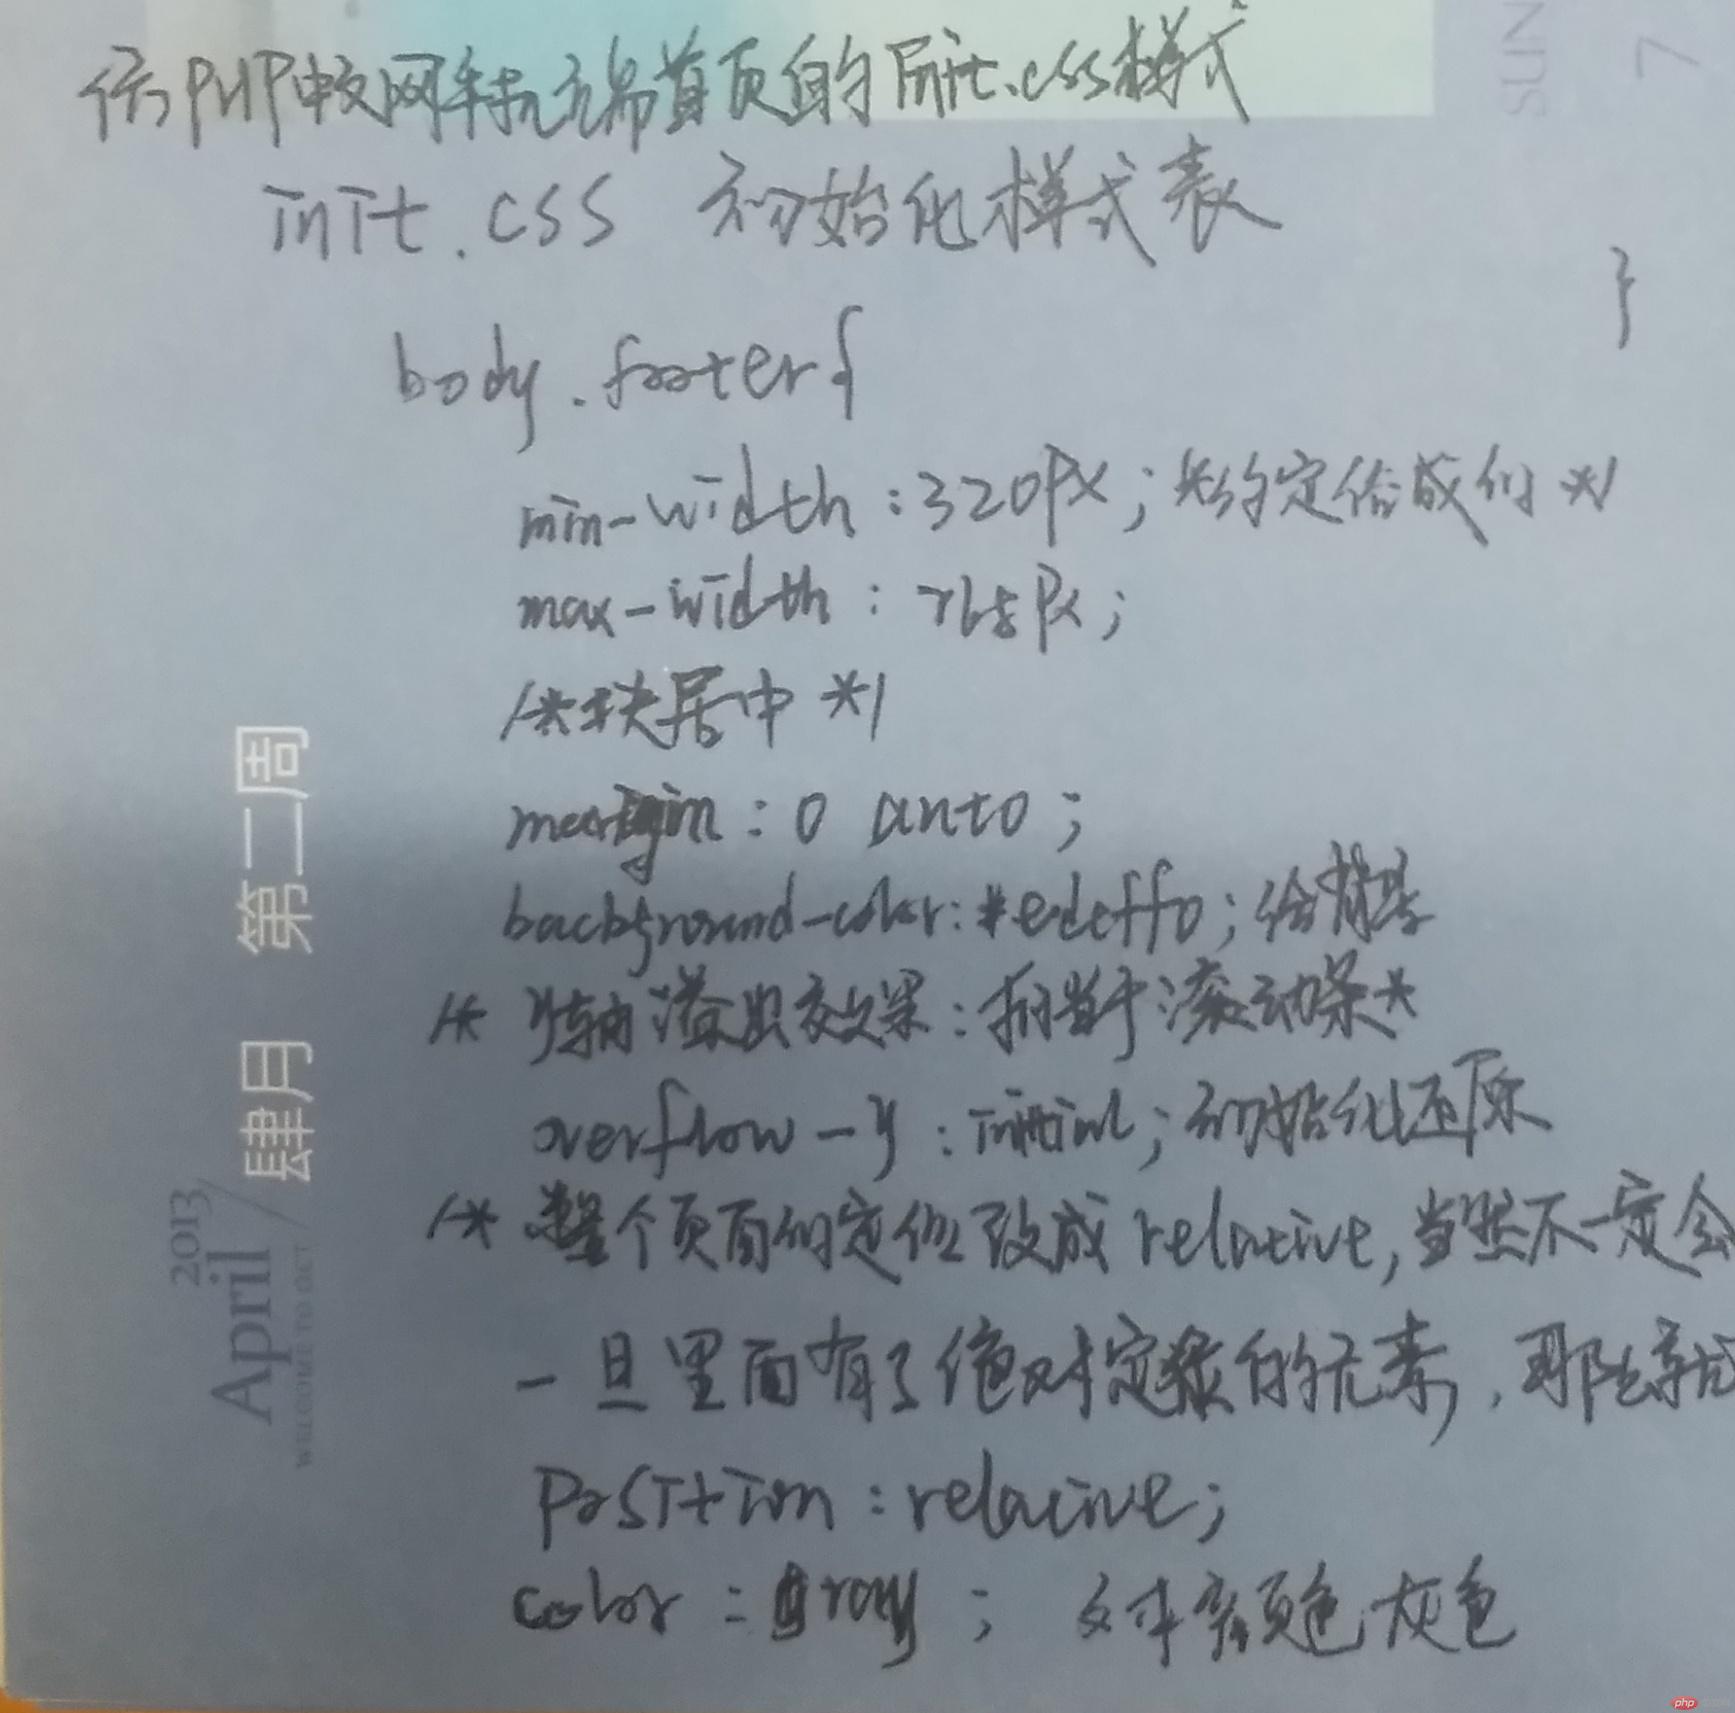 仿PHP中文网手机端首页的init.css样式
init.css 初始化样式表
}
body.footer{
min-width:320px; *约定俗成的*/
max-width:768px;
/*块居中*/
margin:0 auto;
background-color:#edeff0;给背景
/* y轴溢出效果:相当于滚动条*
overflow-y:initial;初始化还原
/* 整个页面的定位改成relative,当然不一定会
一旦里面有了绝对定位的元素,那么
position:relative;
color:gray; 文本颜色灰色
SUN
7
肆月 第二周
2013
April
WELCOME TO OCT
php